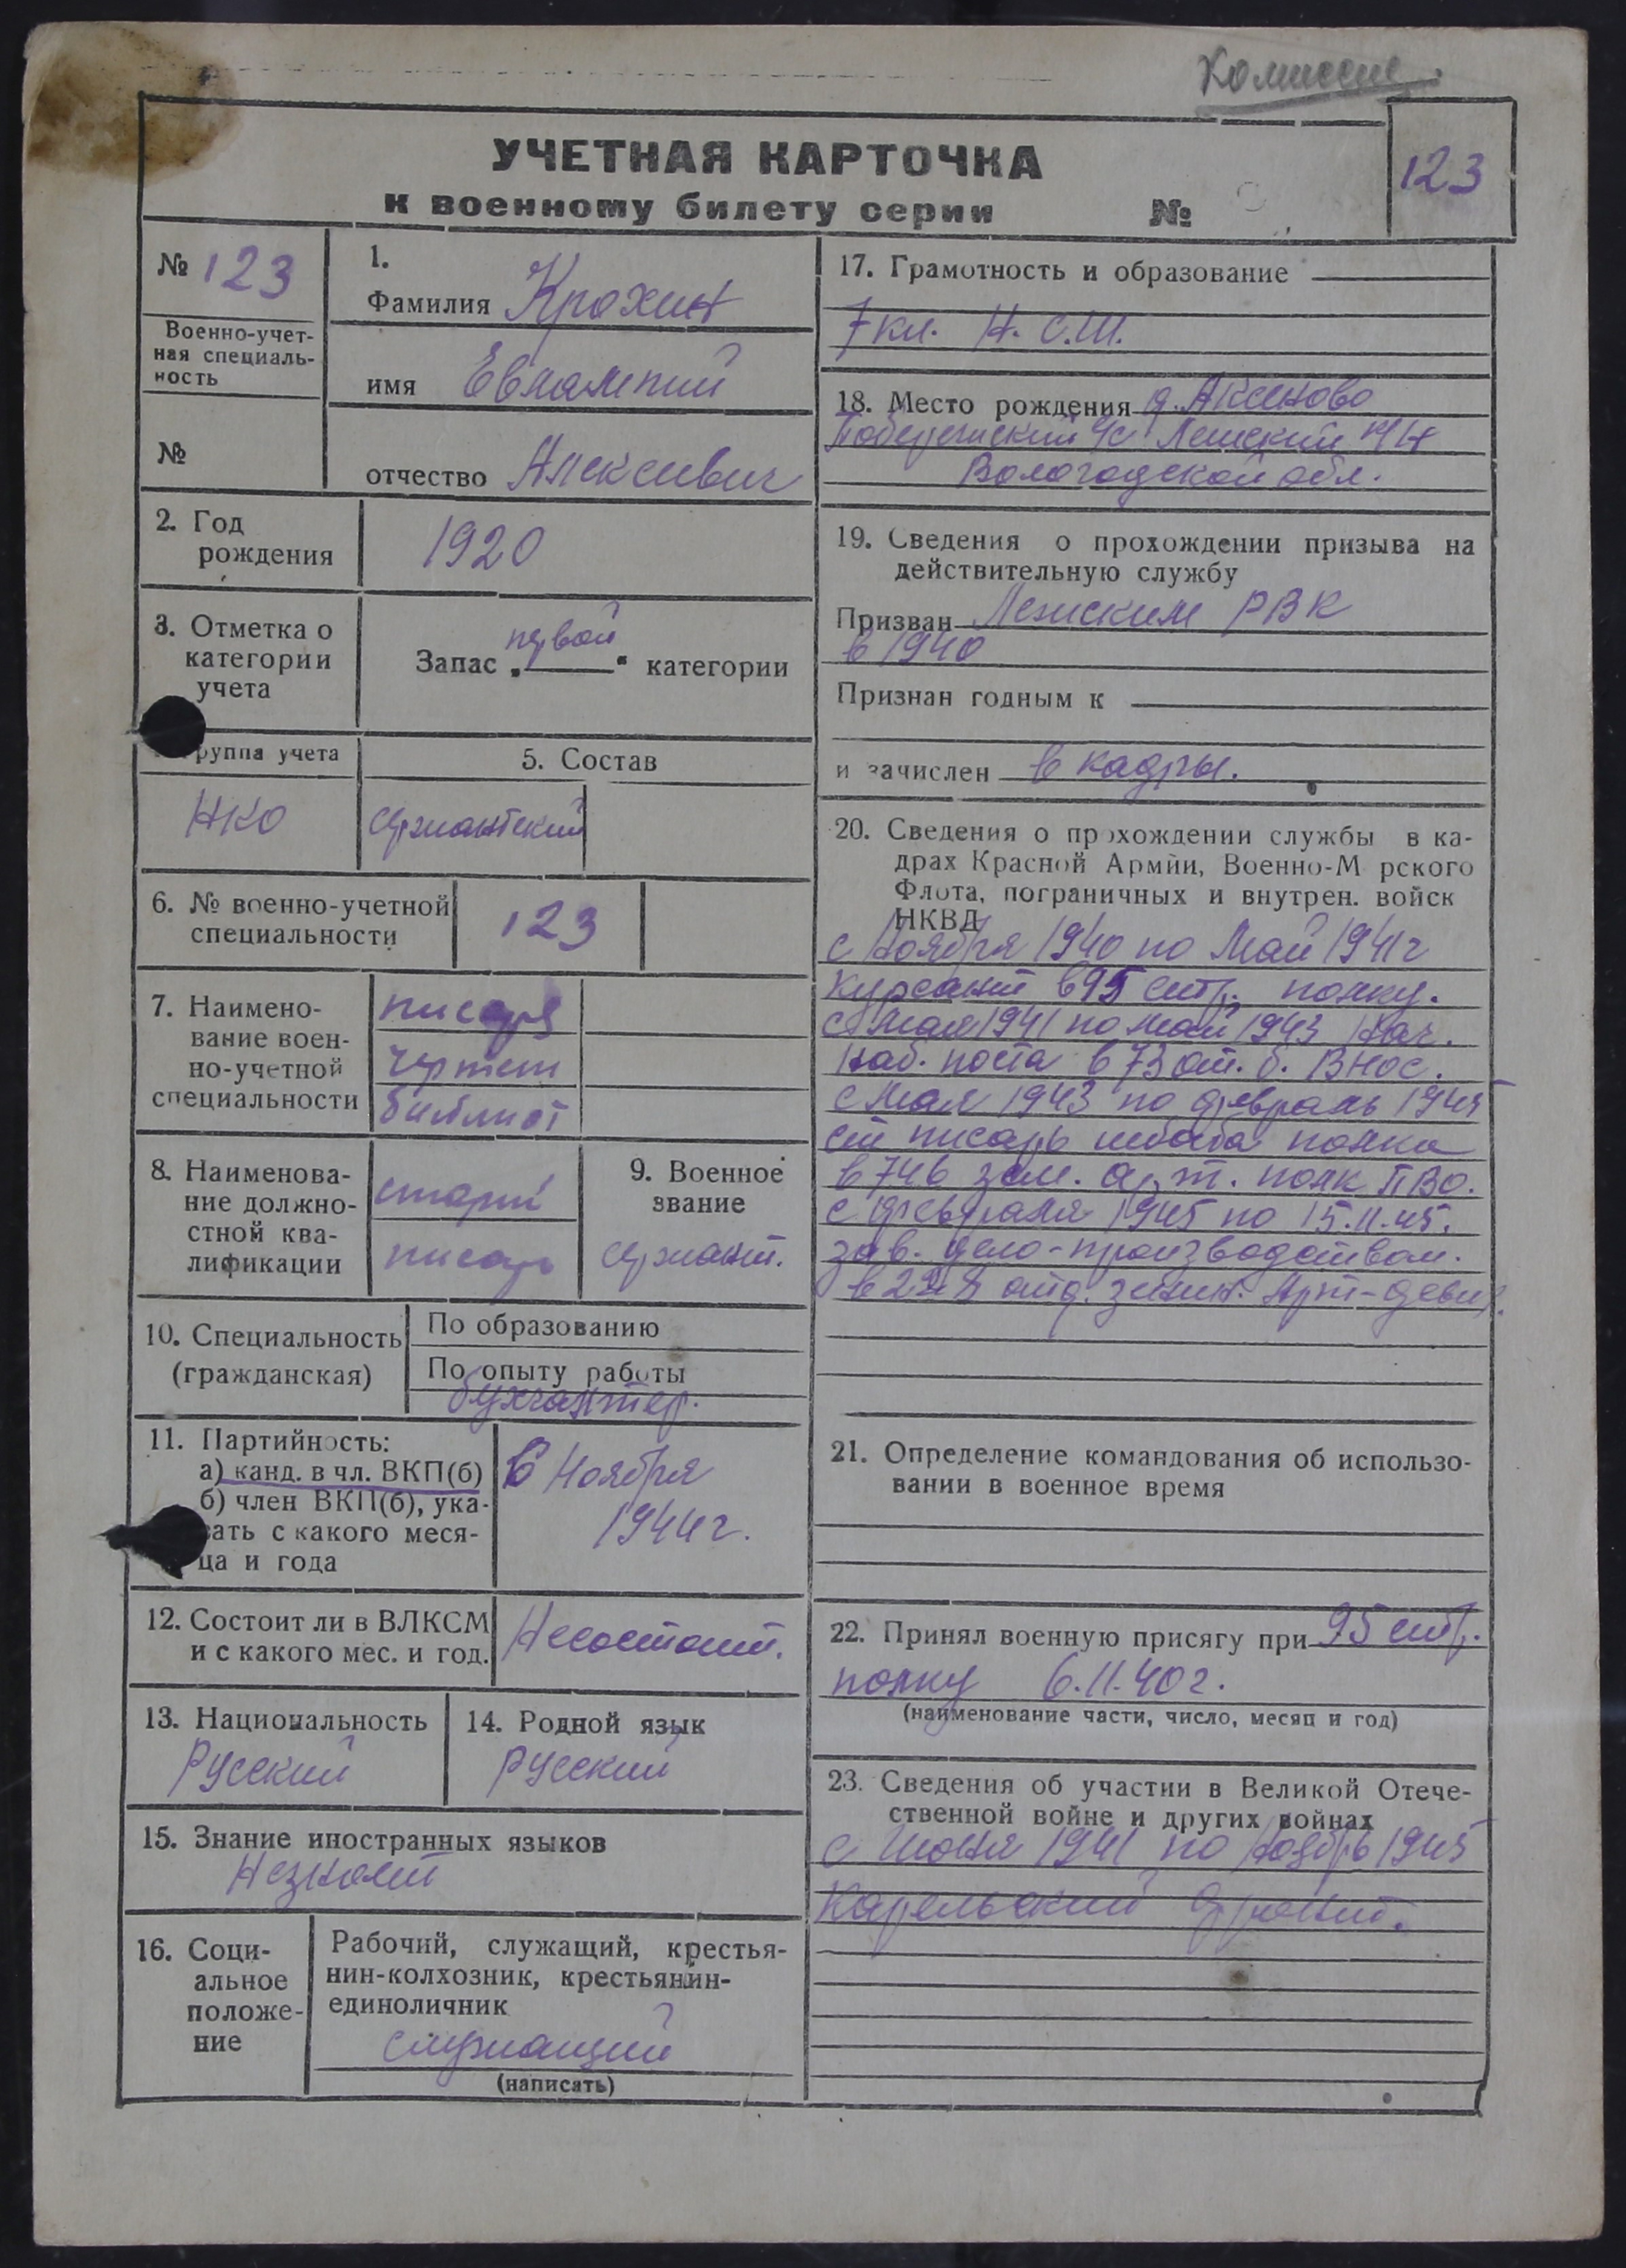 Комиссие
УЧЕТНАЯ КАРТОЧКА
к военному билету серии №
123
№ 123
Военно-учет-
ная специаль-
ность
№
1.
Фамилия Крохин
имя Евлампий
отчество Алексеивич
2. Год
рождения
1920
3. Отметка о
категории
учета
первой
Запас „ “ категории
руппа учета
НКО
5. Состав
сержантский
6. № военно-учетной
специальности
123
7. Наимено-
вание воен-
но-учетной
специальности
писаря
чертеж
библиот
8. Наименова-
ние должно-
стной ква-
лификации
старш
писарь
9. Военное
звание
сержант.
10. Специальность
(гражданская)
По образованию
По опыту работы
бухгалтер.
11. Партийность:
а) канд. в чл. ВКП(б)
б) член ВКП(б), ука-
зать с какого меся-
ца и года
С Ноября
1944г.
12. Состоит ли в ВЛКСМ
и с какого мес. и год.
Несостоит.
13. Национальность
Русский
14. Родной язык
русский
15. Знание иностранных языков
Незнает
16. Соци-
альное
положе-
ние
Рабочий, служащий, крестья-
нин-колхозник, крестьянин-
единоличник
служащий
(написать)
17. Грамотность и образование
7 кл. Н. С.Ш.
18. Место рождения д. Аксеново
с/с Лежский р/н
Вологодской обл.
19. Сведения о прохождении призыва на
действительную службу
Призван Лежским РВК
в 1940
Признан годным к
и зачислен в кадры.
20. Сведения о прохождении службы в ка-
драх Красной Армии, Военно-М рского
Флота, пограничных и внутрен. войск
НКВД
с Ноября 1940 по Май 1941г
курсант в 95 стр. полку.
с Мая 1941 по Май 1943 Нач.
наб. поста в 73 от. б. ВНОС.
с Мая 1943 по февраль 1945
ст писарь штаба полка
в 746 зен. арт. полк ПВО.
с февраля 1945 по 15.11.45.
зав. дело-производством.
в отд. зенит. Арт-девиз.
21. Определение командования об использо-
вании в военное время
22. Принял военную присягу при 95 стр.
полку 6.11.40г.
(наименование части, число, месяц и год)
23. Сведения об участии в Великой Отече-
ственной войне и других войнах
с Июня 1941 по Ноябрь 1945
Карельский фронт.